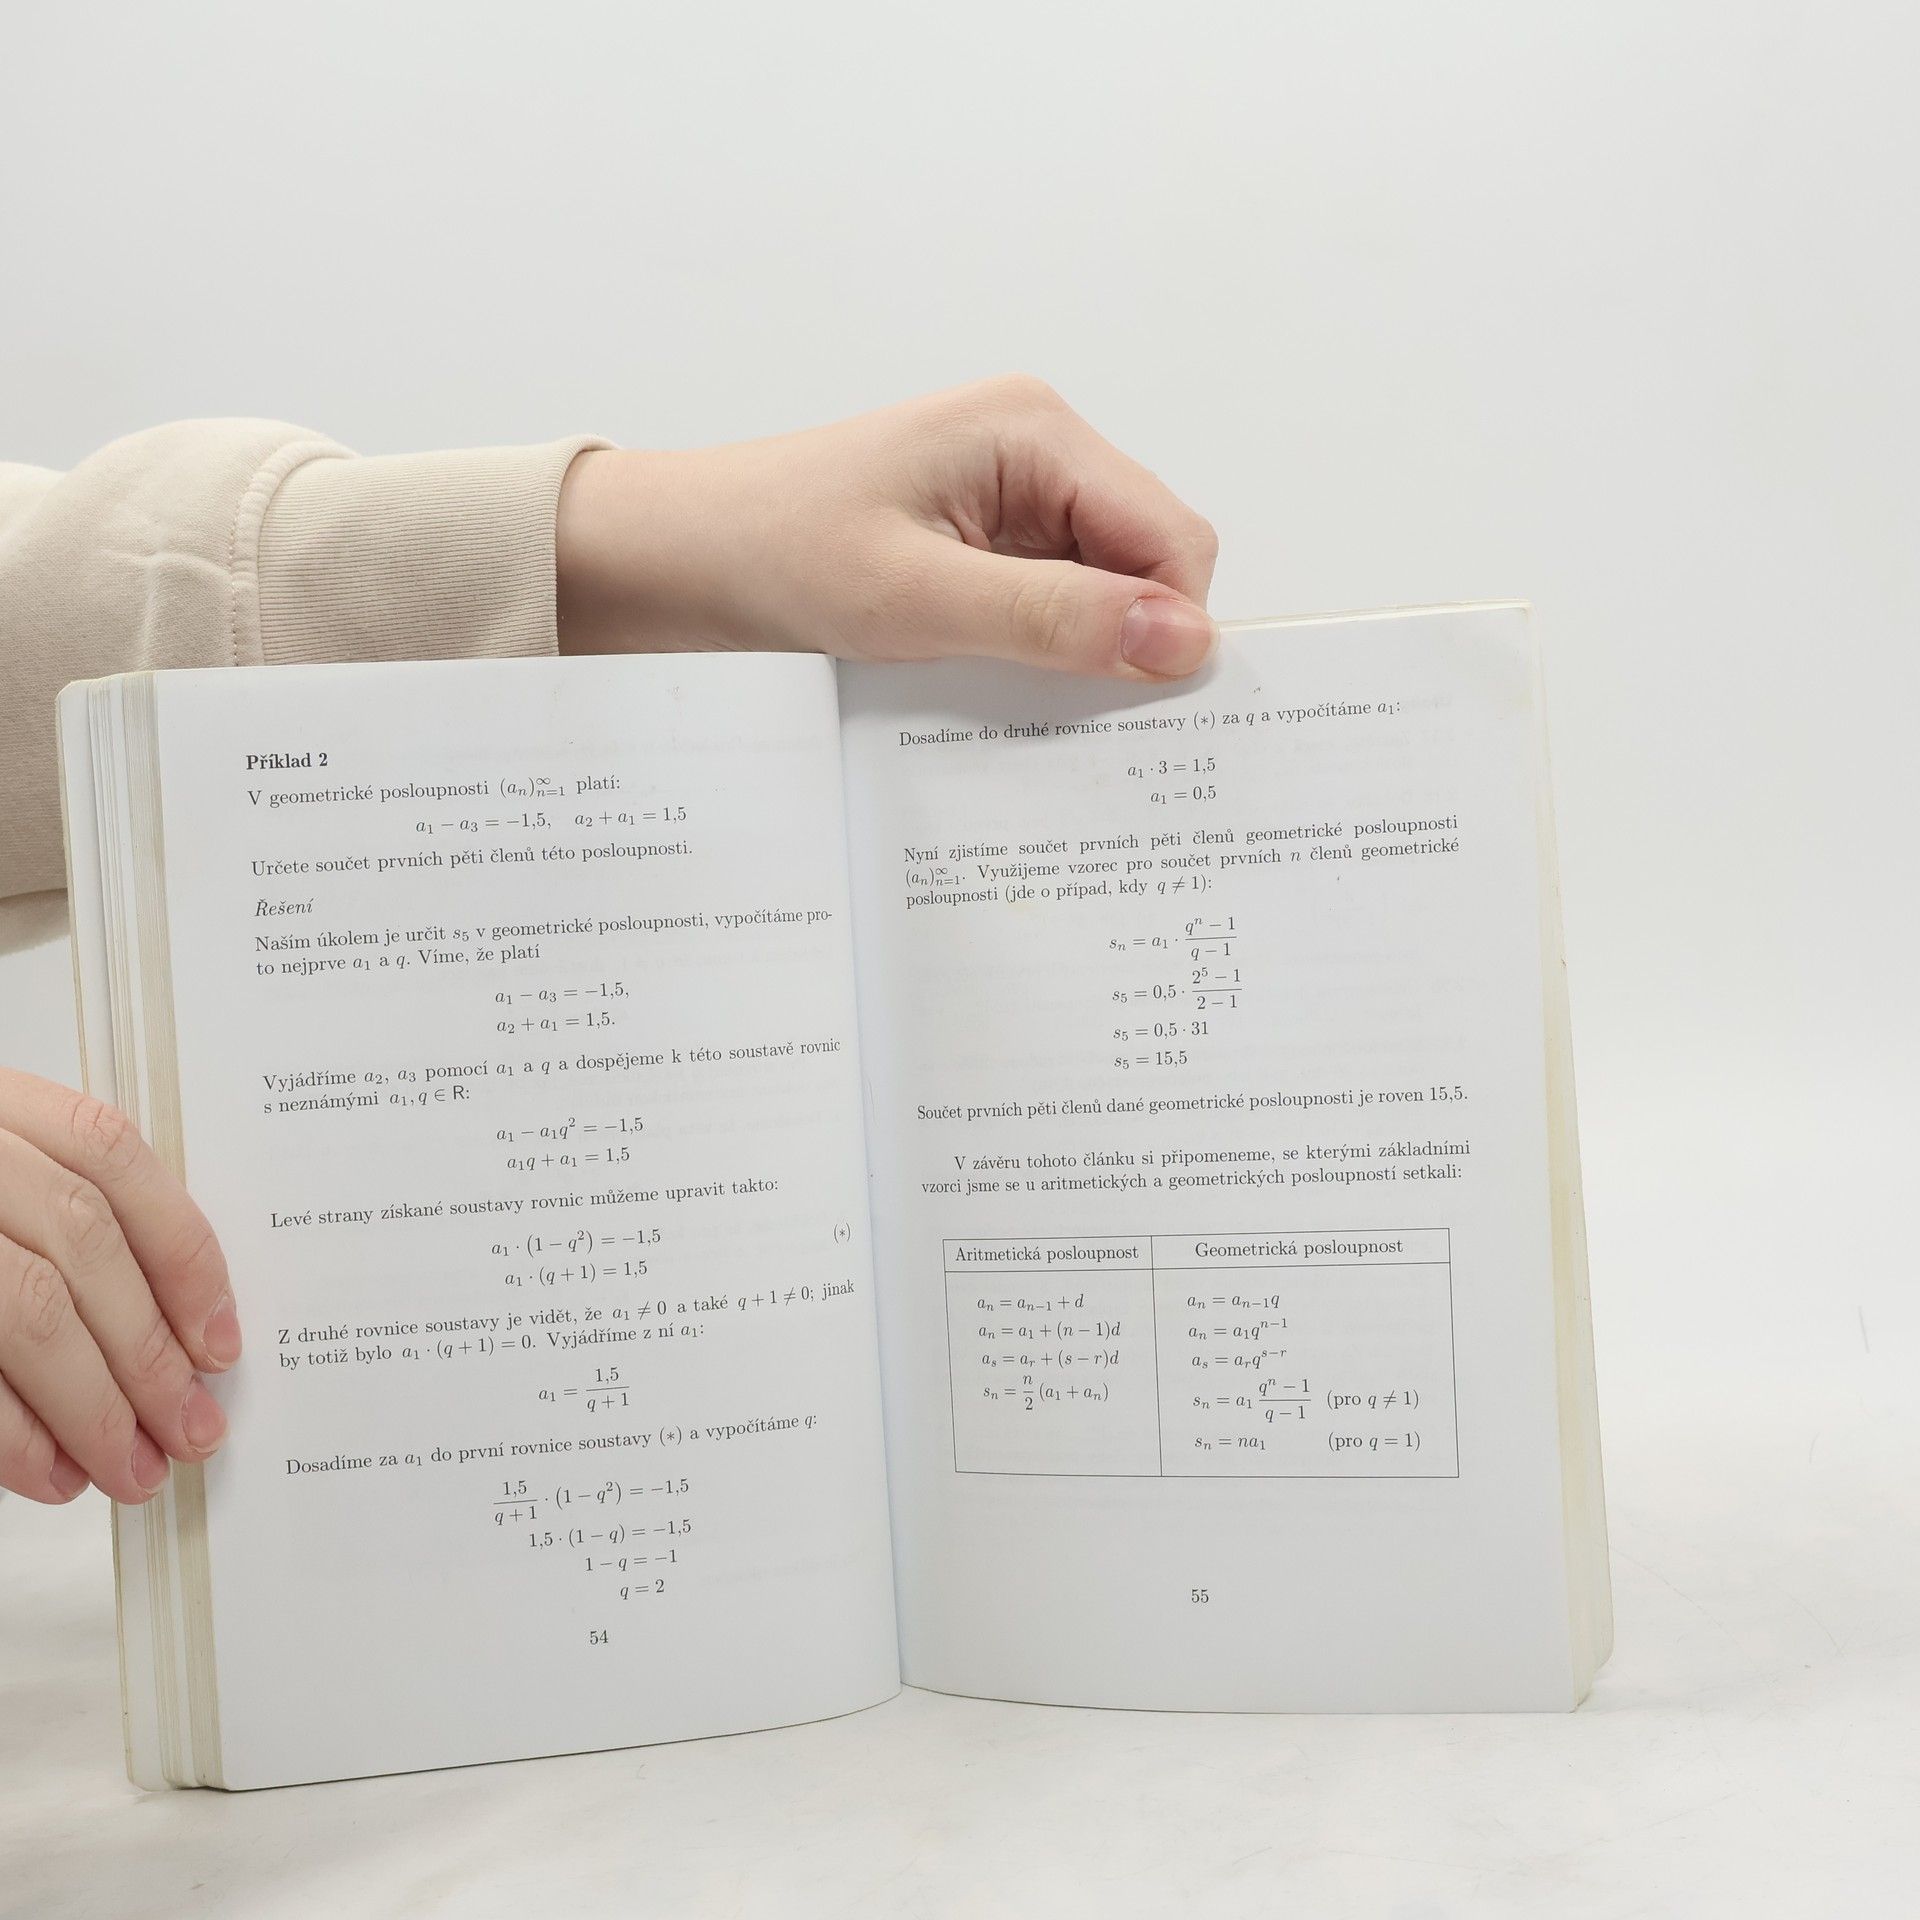 Příklad 2
V geometrické posloupnosti (aₙ)ₙ₌₁^∞ platí:
a₁ − a₃ = −1,5, a₂ + a₁ = 1,5
Určete součet prvních pěti členů této posloupnosti.
Řešení
Naším úkolem je určit s₅ v geometrické posloupnosti, vypočítáme pro-
to nejprve a₁ a q. Víme, že platí
a₁ − a₃ = −1,5,
a₂ + a₁ = 1,5.
Vyjádříme a₂, a₃ pomocí a₁ a q a dospějeme k této soustavě rovnic
s neznámými a₁, q ∈ R:
a₁ − a₁q² = −1,5
a₁q + a₁ = 1,5
Levé strany získané soustavy rovnic můžeme upravit takto:
a₁ · (1 − q²) = −1,5 (∗)
a₁ · (q + 1) = 1,5
Z druhé rovnice soustavy je vidět, že a₁ ≠ 0 a také q + 1 ≠ 0; jinak
by totiž bylo a₁ · (q + 1) = 0. Vyjádříme z ní a₁:
a₁ = 1,5/(q + 1)
Dosadíme za a₁ do první rovnice soustavy (∗) a vypočítáme q:
1,5/(q + 1) · (1 − q²) = −1,5
1,5 · (1 − q) = −1,5
1 − q = −1
q = 2
54
Dosadíme do druhé rovnice soustavy (∗) za q a vypočítáme a₁:
a₁ · 3 = 1,5
a₁ = 0,5
Nyní zjistíme součet prvních pěti členů geometrické posloupnosti
(aₙ)ₙ₌₁^∞. Využijeme vzorec pro součet prvních n členů geometrické
posloupnosti (jde o případ, kdy q ≠ 1):
sₙ = a₁ · (qⁿ − 1)/(q − 1)
s₅ = 0,5 · (2⁵ − 1)/(2 − 1)
s₅ = 0,5 · 31
s₅ = 15,5
Součet prvních pěti členů dané geometrické posloupnosti je roven 15,5.
V závěru tohoto článku si připomeneme, se kterými základními
vzorci jsme se u aritmetických a geometrických posloupností setkali:
Aritmetická posloupnost Geometrická posloupnost
aₙ = aₙ₋₁ + d aₙ = aₙ₋₁q
aₙ = a₁ + (n − 1)d aₙ = a₁qⁿ⁻¹
aₛ = aᵣ + (s − r)d aₛ = aᵣqˢ⁻ʳ
sₙ = n/2 (a₁ + aₙ) sₙ = a₁ (qⁿ − 1)/(q − 1) (pro q ≠ 1)
sₙ = na₁ (pro q = 1)
55